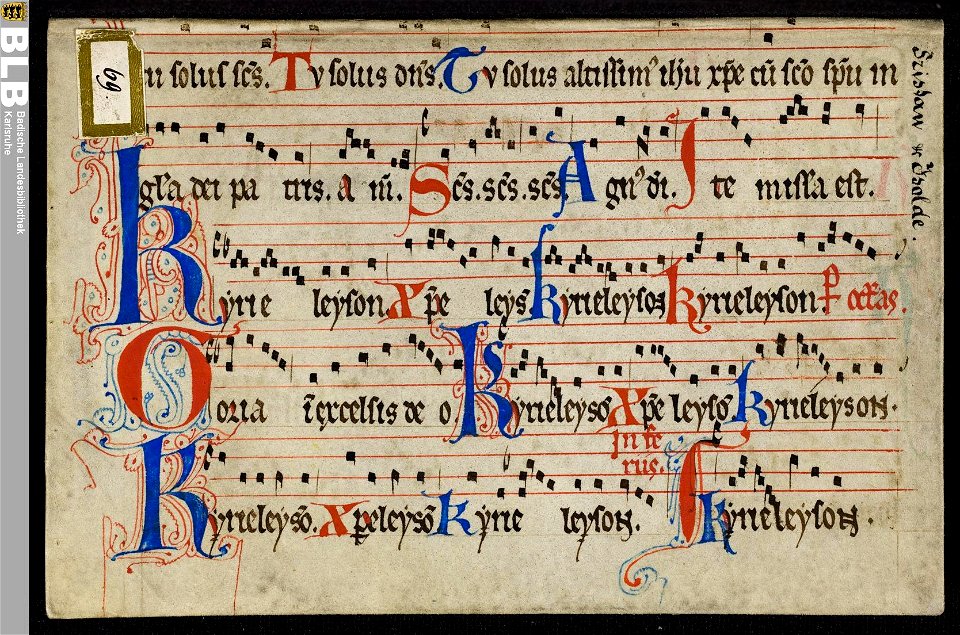 BLB Badische Landesbibliothek Karlsruhe
69.
tu solus scs. Tu solus dns. Tu solus altissim' ihu xpe cu sco spu in
gl'a dei pa tris. a m. Scs. scs. scs A gn' di. I te missa est.
Kyrie leyson. Xpe leys kyrieleyson kyrieleyson.
Gloria i excelsis de o Kyrieleyso Xpe leyso kyrieleyson.
In fe
riis.
Kyrieleyso. Xpeleyso kyrie leyson. kyrieleyson.
Tristan & Isolde.